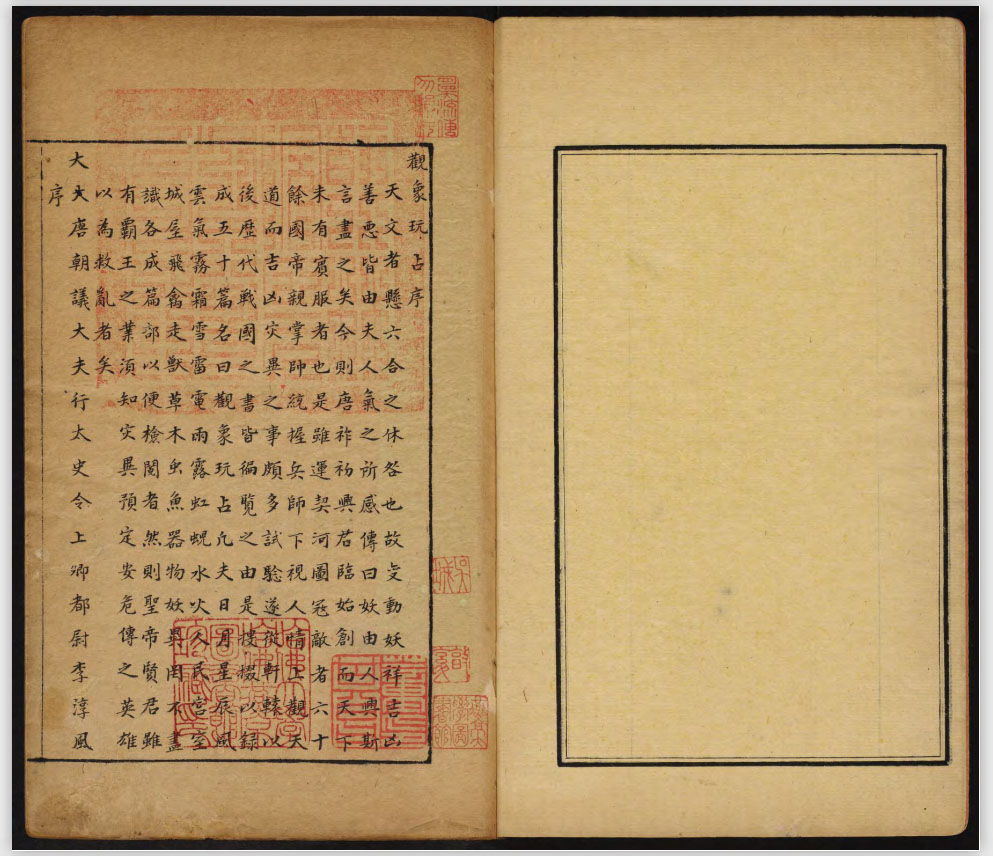 觀象玩占序
天文者懸六合之休咎也故變動妖祥吉凶
善惡皆由夫人氣之所感傳曰妖由人興斯
言盡之矣今則唐祚初興君臨始創而天下
未有賓服者也是雖運契河圖冦敵者六十
餘國帝親掌帥統握兵師下視人情上觀天
道而吉凶灾異之事頗多試驗遂從軒轅以
後歷代戰國之書皆徧覽之由是摟綴以録
成五十篇名曰觀象玩占凢夫日月星辰風
雲氣霧霜雪雷電雨露虹蜺水火人民宫室
城屋飛禽走獸草木虫魚器物妖異罔不盡
識各成篇部以便檢閱者然則聖帝賢君雖
有霸王之業湏知灾異預定安危傳之英雄
以為救亂者矣
大唐朝議大夫行太史令上卿都尉李淳風
序